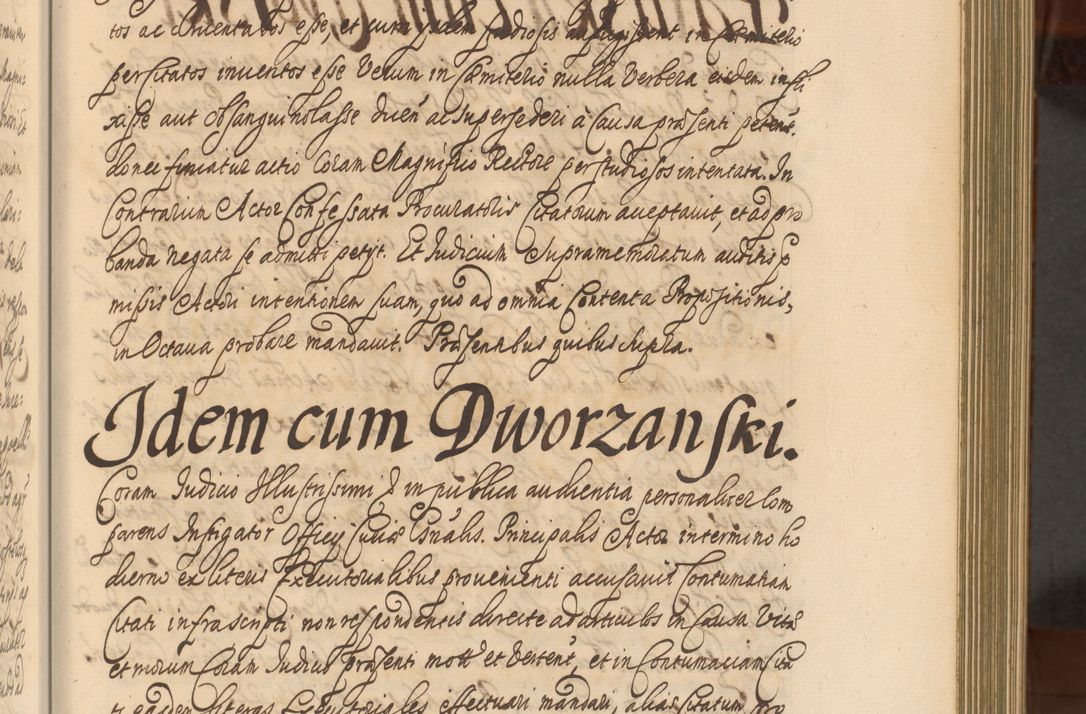 tos ac cruentatos esse, et cum ijdem studiosis aufugissent in Cæmiterio
per Citatos inuentos esse Verum in Cæmiterio nulla Verbera eisdem infli
xisse aut obsanguinolasse ducen ac supersederi à Causa præsenti petent.
donec finiatur actio Coram Magnifico Rectore per studiosos intentata. In
Contrarium Actor Confessata Procuratoris Citatorum acceptauit, et ad pro
banda negata se admitti petijt. Et Iudicium Supramemoratum auditis p
missis Actori intentionem suam, quo ad omnia Contenta Propositionis,
in Octaua probare mandauit. Præsentibus quibus supra.
Idem cum Dworzanski.
Coram Iudicio Illustrissimi D in publica audientia personaliter Com
parens Instigator Officij Curiæ Gsnalis. Principalis Actor in termino ho
dierno ex literis Executorialibus proueniente accusauit Contumatiam
Citati infrascripti non respondentis directe ad articulos in Causa Vitæ
et morum Coram Iudicio præsenti mott et Vertent, et in Contumaciam Cita
ti easdem literas Executoriales effectuari mandari, alias Citatum pro